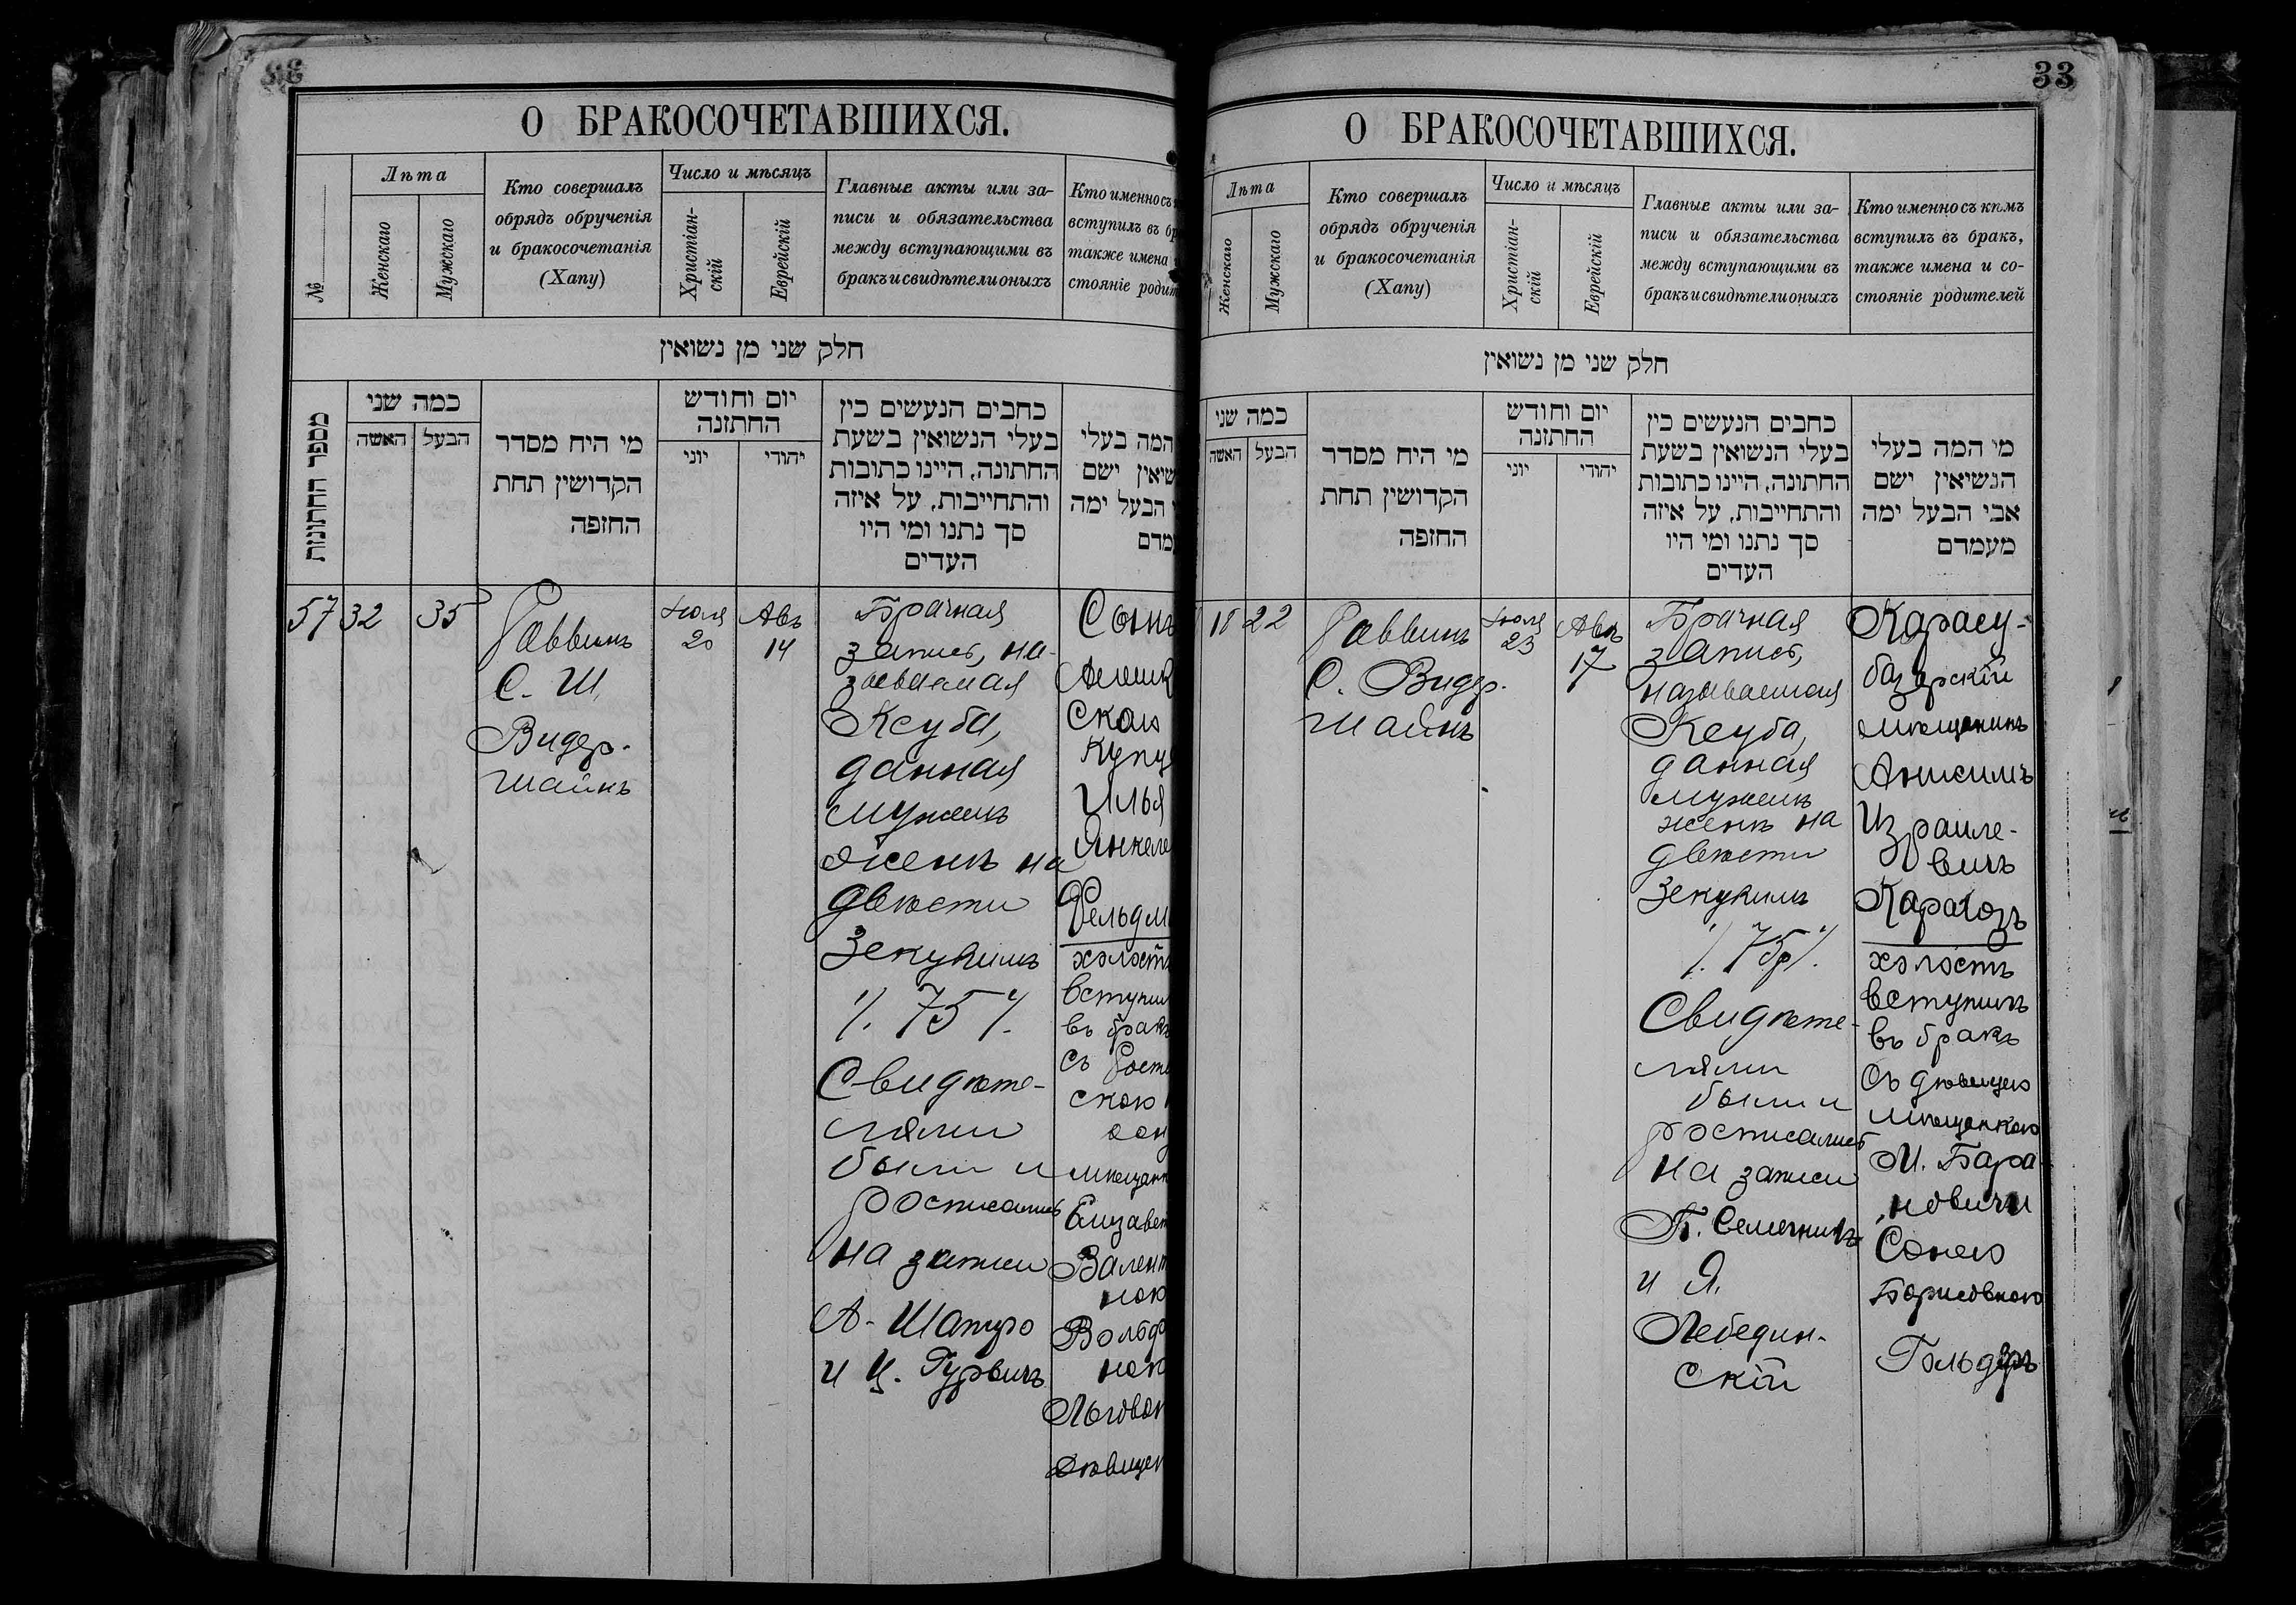 33
О БРАКОСОЧЕТАВШИХСЯ.
№
Лѣта
Женскаго
Мужскаго
Кто совершалъ
обрядъ обрученія
и бракосочетанія
(Хапу)
Число и мѣсяцъ
Христіан-
скій
Еврейскій
Главные акты или за-
писи и обязательства
между вступающими въ
бракъ и свидѣтели оныхъ
Кто именно съ
вступилъ въ
также имена
стояніе
חלק שני מן נשואין
מספר החתונות
כמה שני
האשה
הבעל
מי היח מסדר
הקדושין תחת
החזפה
יום וחודש
החתזנה
יוני
יהודי
כחבים הנעשים כין
בעלי הנשואין בשעת
החתונה, היינו כתובות
והתחייבות, על איזה
סך נתנו ומי היו
העדים
המה בעלי
ישם
הבעל ימה
57
32
35
Раввинъ
С. Ш.
Видер-
шайнъ
Іюля
20
Авъ
14
Брачная
запись, на-
зываемая
Ксуба,
данная
мужемъ
женѣ на
двѣсти
Зекукимъ
/. 75 /.
Свидѣте-
лями
были и
росписались
на записи
А. Шапиро
и Ц. Гурвичъ
скаю
Илья
въ бракъ
съ
скою
О БРАКОСОЧЕТАВШИХСЯ.
33
Лѣта
Женскаго
Мужскаго
Кто совершалъ
обрядъ обрученія
и бракосочетанія
(Хапу)
Число и мѣсяцъ
Христіан-
скій
Еврейскій
Главные акты или за-
писи и обязательства
между вступающими въ
бракъ и свидѣтели оныхъ
Кто именно съ кѣмъ
вступилъ въ бракъ,
также имена и со-
стояніе родителей
חלק שני מן נשואין
כמה שני
האשה
הבעל
מי היח מסדר
הקדושין תחת
החזפה
יום וחודש
החתזנה
יוני
יהודי
כחבים הנעשים כין
בעלי הנשואין בשעת
החתונה, היינו כתובות
והתחייבות, על איזה
סך נתנו ומי היו
העדים
מי המה בעלי
הנשיאין ישם
אבי הבעל ימה
מעמדם
18
22
Раввинъ
С. Видер-
шайнъ
Іюля
23
Авъ
17
Брачная
запись,
называемая
Ксуба,
данная
мужемъ
женѣ на
двѣсти
Зекукимъ
/. 75р/.
Свидѣте-
лями
были и
росписались
на записи
и Я.
Лебедин-
скій
Карасу-
базарскій
мѣщанинъ
Анисимъ
Израиле-
вичъ
Карагозъ
холостъ
вступилъ
въ бракъ
съ дѣвицею
мѣщанкою
м. Бара-
новичи
Сонею
Борисовною